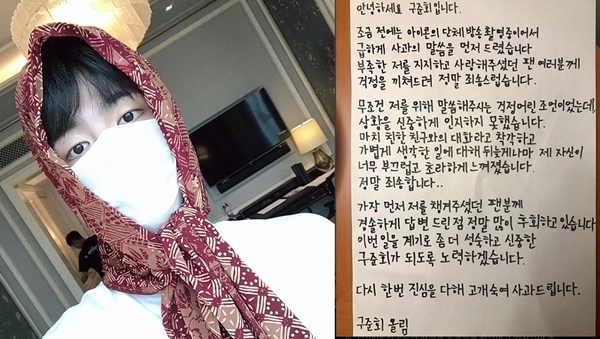 안녕하세요 구준회입니다.
조금 전에는 아이콘의 단체 방송 촬영중이어서
급하게 사과의 말씀을 먼저 드렸습니다
부족한 저를 지지하고 사랑해주셨던 팬 여러분께
걱정을 끼쳐드려 정말 죄송스럽습니다.
무조건 저를 위해 말씀해주시는 걱정어린 조언이었는데,
상황을 신중하게 인지하지 못했습니다.
마치 친한 친구와의 대화라고 착각하고
가볍게 생각한 일에 대해 뒤늦게나마 제 자신이
너무 부끄럽고 초라하게 느껴졌습니다.
정말 죄송합니다..
가장 먼저 저를 챙겨주셨던 팬분께
경솔하게 답변 드린점 정말 많이 후회하고 있습니다
이번 일을 계기로 좀 더 성숙하고 신중한
구준회가 되도록 노력하겠습니다.
다시 한번 진심을 다해 고개숙여 사과드립니다.
구준회 올림